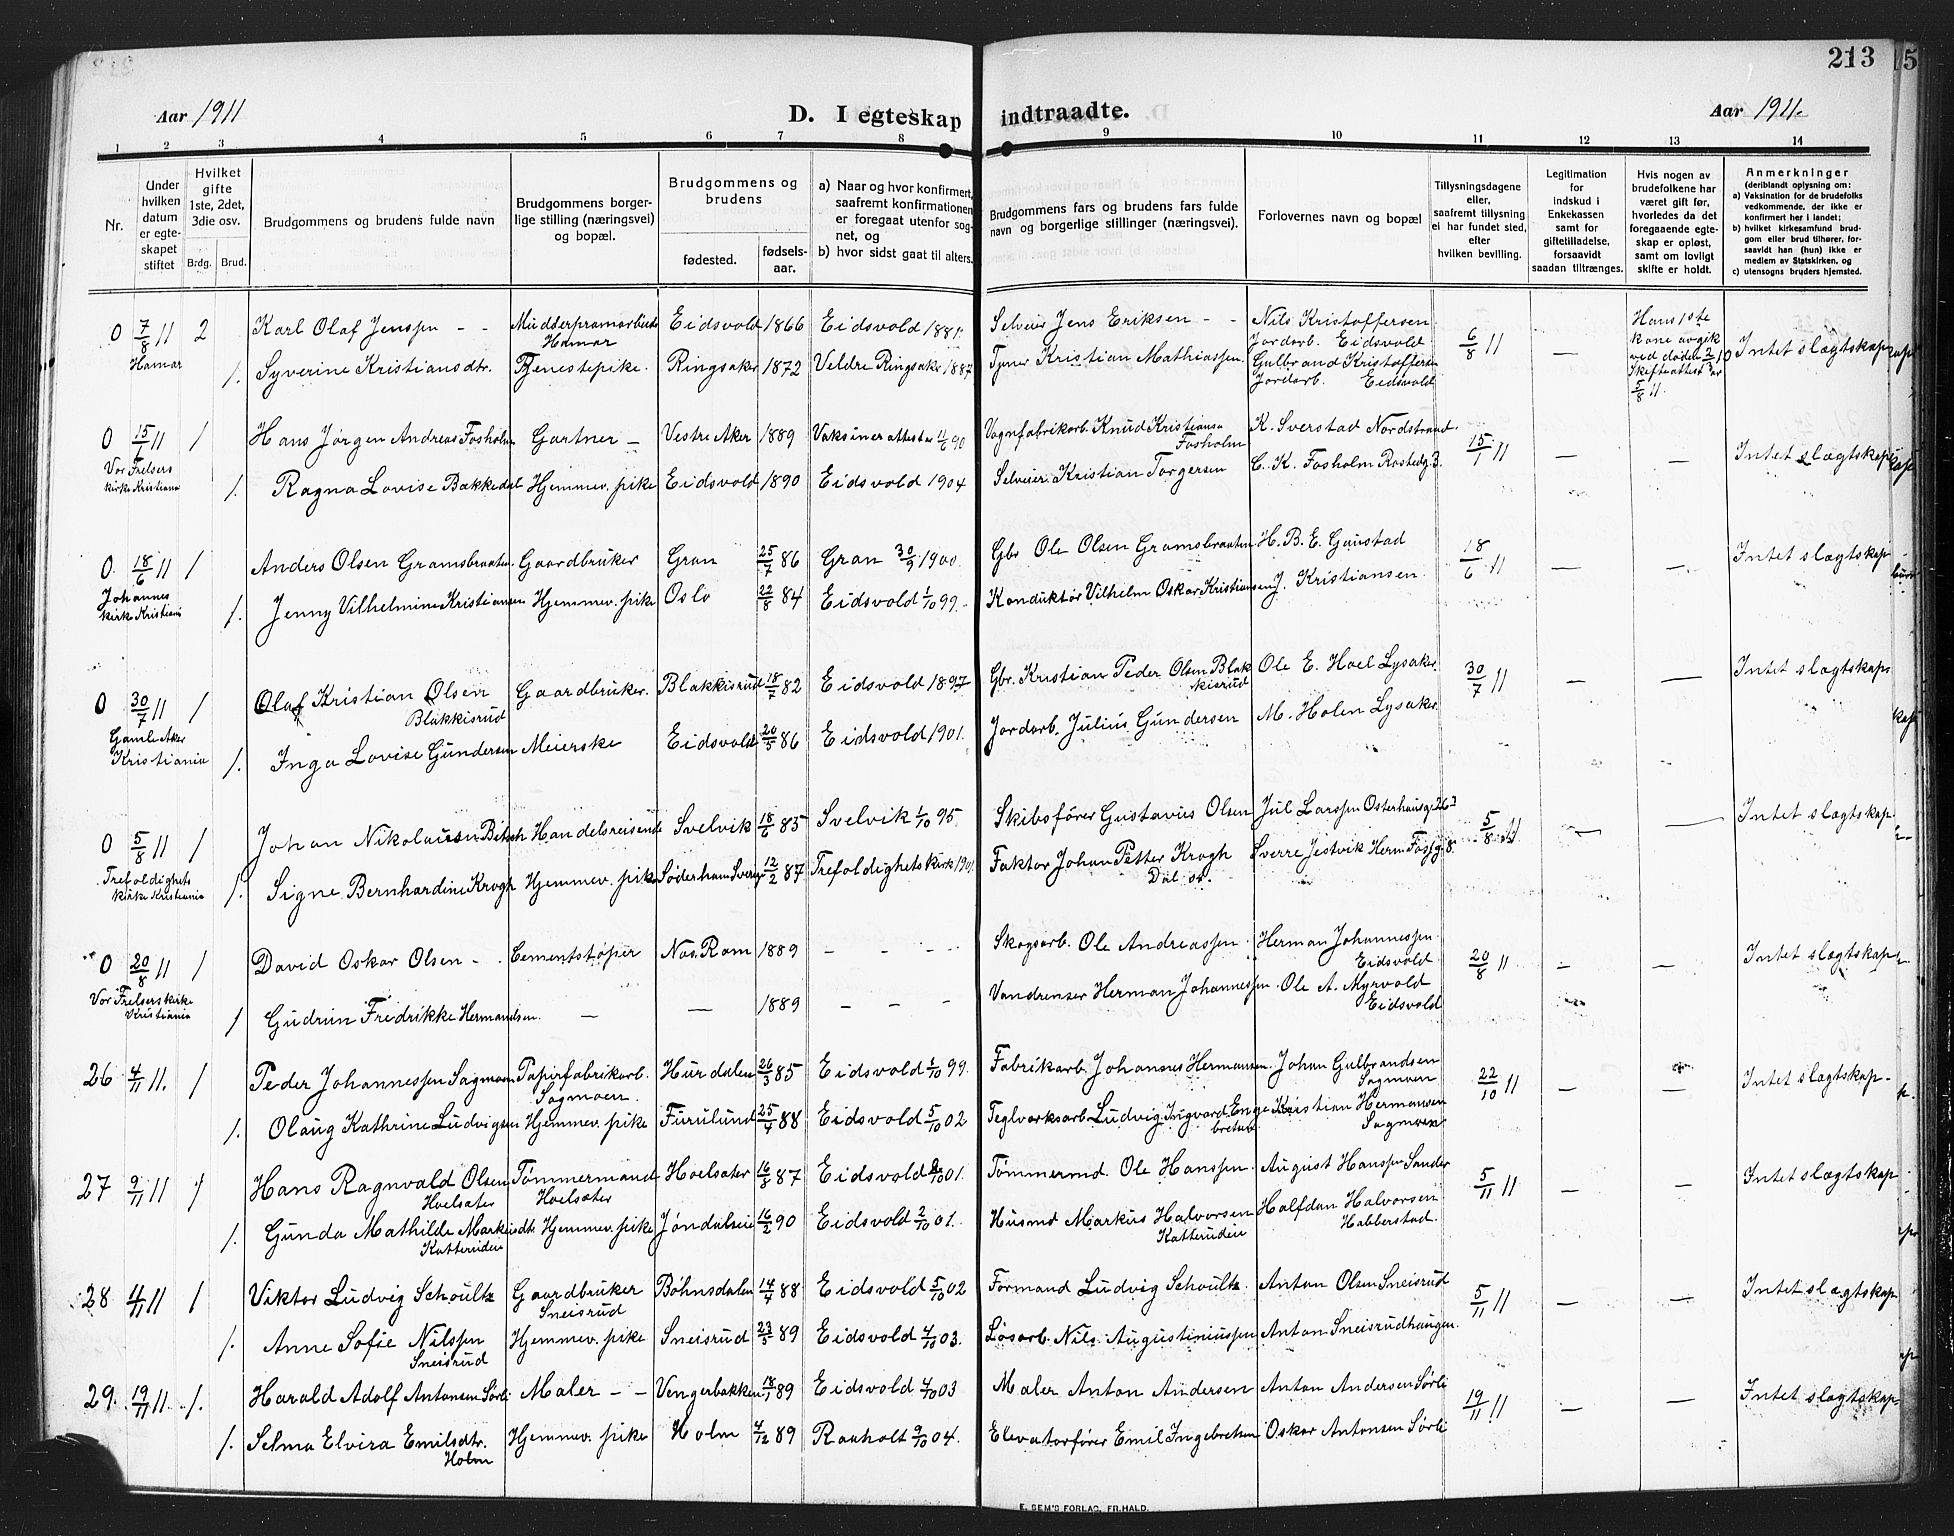 213
Aar 1911
D. I egteskap indtraadte.
Aar 1911.
1 2 3 4 5 6 7 8 9 10 11 12 13 14
Nr.
Under hvilken datum er egteskapet stiftet
Hvilket gifte 1ste, 2det, 3die osv.
Brdg. Brud.
Brudgommens og brudens fulde navn
Brudgommens borgerlige stilling (næringsvei) og bopæl.
Brudgommens og brudens
fødested.
fødselsaar.
a) Naar og hvor konfirmert, saafremt konfirmationen er foregaat utenfor sognet, og
b) hvor sidst gaat til alters.
Brudgommens fars og brudens fars fulde navn og borgerlige stillinger (næringsvei).
Forlovernes navn og bopæl
Tillysningsdagene eller, saafremt tillysning ei har fundet sted, efter hvilken bevilling.
Legitimation for indskud i Enkekassen samt for giftetilladelse, forsaavidt saadan tiltrænges.
Hvis nogen av brudefolkene har været gift før, hvorledes da det foregaaende egteskap er opløst, samt om lovligt skifte er holdt.
Anmerkninger
(deriblandt oplysning om:
a) Vaksination for de brudefolks vedkommende, der ikke er konfirmert her i landet;
b) hvilket kirkesamfund brudgom eller brud tilhører, forsaavidt han (hun) ikke er medlem av Statskirken, og
c) utensogns bruders hjemsted.
0 7/8 11 2 Karl Olaf Jenssen - - Mudderpramarbeider Hamar Eidsvold 1866 Eidsvold 1881. Selveier Jens Eriksen - - Nils Kristoffersen Jordarb. Eidsvold 6/8 11 — Hans 1ste kone avgik ved døden Skifteattest 5/8 11. Intet slægtskap
Hamar 1. Syverine Kristiansdtr. Tjenestepike. Ringsaker 1872 Veldre Ringsaker 1887 Kristian Mathiassen. Gulbrand Kristoffersen Jordarb. Eidsvold
0 15/1 11 1 Hans Jørgen Andreas Fosholm Gartner — Vestre Aker 1889 Vaksinerattest 90 Vognfabrikarb. Knud Kristiansen Fosholm K. Sverstad Nordstrand. 15/1 11 — — Intet slægtskap
Vor Frelsers kirke Kristiania 1. Ragna Lovise Bækkedal Hjemmev. pike Eidsvold 1890 Eidsvold 1904 Selveier. Kristian Torgersen C. K. Fosholm Rostedg. 3.
0. 18/6 11 1 Anders Olsen Gramsbraaten. Gaardbruker Gran 25/7 86 Gran 30/9 1900. Gbr Ole Olsen Gramsbraaten H. B. E. Gaustad 18/6 11 — — Intet slægtskap
Johannes kirke Kristiania 1. Jenny Vilhelmine Kristiansen Hjemmev. pike Oslo 22/8 84 Eidsvold 1/10 99. Konduktør Vilhelm Oskar Kristiansen J. Kristiansen.
0 30/7 11 1 Olaf Kristian Olsen Blakkisrud Gaardbruker. Blakkisrud 18/7 82 Eidsvold 1897 Gbr. Kristian Peder Olsen Blakkisrud Ole E. Hoel Lysaker. 30/7 11 — — Intet slægtskap
Gamle Aker Kristiania 1. Inga Lovise Gundersen Meierske Eidsvold 20/5 86 Eidsvold 1901. Jordarb. Julius Gundersen M. Holen Lysaker.
0 5/8 11 1 Johan Nikolaisen Handelsreisende Svelvik 18/6 85 Svelvik 1/10 95. Skibsfører Gustavus Olsen Jul Larssen Osterhausg. 5/8 11 — — Intet slægtskap.
Trefoldighets kirke Kristiania 1. Signe Bernhardine Krogh Hjemmev. pike Søderham Sverige 12/2 87 Trefoldighets kirk 1901. Faktor Johan Petter Krogh Dal st. Sverre Jestvik Herm Fossg. 8.
0 20/8 11 1 David Oskar Olsen - - Cementstøper Nos. Rom. 1889 - - - - Skogsarb. Ole Andreassen. Herman Johannessen. Eidsvold 20/8 11 — — Intet slægtskap
Vor Frelserskirke Kristiania 1 Gudrun Fredrikke Hermandsen. — — 1889 - - - Vandrenser Herman Johannessen. Ole A. Myrvold Eidsvold
26 4/11 11. 1 Peder Johannessen Sagmoen Papirfabrikarb. Sagmoen. Hurdalen 26/3 85 Eidsvold 1/10 99. Fabrikarb. Johannes Hermansen. Johan Gulbrandsen Sagmoen 22/10 11 — — Intet slægtskap.
1. Olaug Kathrine Ludvigsen Hjemmev. pike Furulund 25/4 88 Eidsvold 5/10 02 Teglverksarb. Ludvig Ingvard Engebretsen Kristian Hermansen Sagmoen
27 9/11 11 1 Hans Ragnvald Olsen Hoelsæter Tømmermand Hoelsæter Hoelsæter 16/8 87 Eidsvold 01. Tømmermd. Ole Hanssen. August Hanssen Sander 5/11 11 — — Intet slægtskap
1. Gunda Mathilde Markusdtr. Katterudeie Hjemmev. pike Jøndalseie 16/2 90 Eidsvold 2/10 01. Husmd Markus Halvorsen Katterudeie Halfdan Halvorsen Habberstad.
28 4/11 11 1 Viktor Ludvig Schoultz Gaardbruker Sneisrud Bøhnsdalen 14/7 88 Eidsvold 5/10 02 Formand Ludvig Schoultz. Anton Olsen Sneisrud 5/11 11 — — Intet slægtskap.
1. Anne Sofie Nilssen Sneisrud Hjemmev. pike Sneisrud 23/5 89 Eidsvold 4/10 03. Løsarb. Nils Augustiniussen Anton Sneisrudhaugen.
29. 19/11 11. 1. Harald Adolf Antonsen Sørli Maler - - Vengerbakken 18/1 89 Eidsvold 4/10 03 Maler Anton Andersen Anton Andersen Sørli 19/11 11 — — Intet slægtskap
1. Selma Elvira Emilsdtr. Holm Hjemmev. pike Holm 4/12 89 Raaholt 9/10 04. Elevatorfører Emil Ingebretsen Oskar Antonsen Sørli
E. SEM'S FORLAG, FR.HALD.